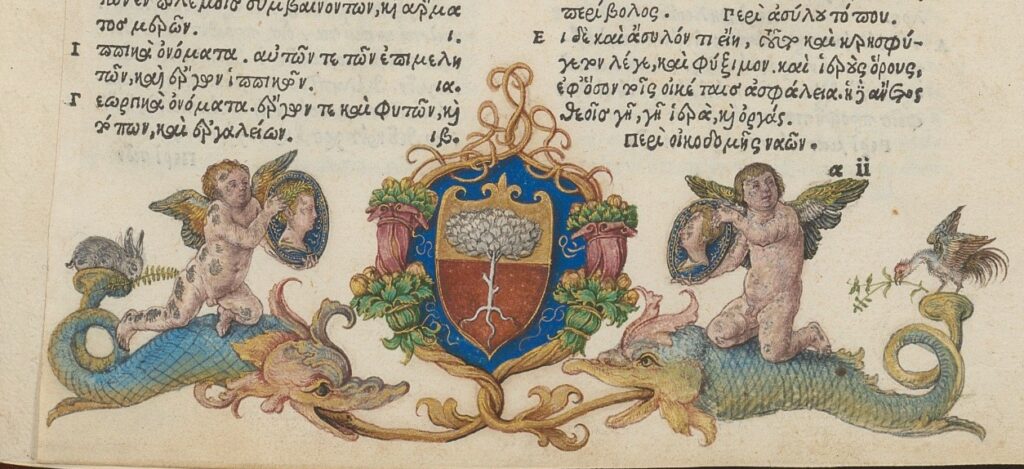 των ἐν πολέμοις συμβαινόντων, καὶ ἅρμα
τος μορῶν. ι.
Ι ππικὰ ὀνόματα. αὐτῶν τε τῶν ἐπιμελη
τῶν, καὶ ἔργων ἱππικῶν. ια.
Γ εωργικὰ ὀνόματα. ἔργων τε καὶ φυτῶν, καὶ
τόπων, καὶ ἐργαλείων. ιβ.
περίβολος. Περὶ ἀσύλου τόπου.
Ε ἰ δὲ καὶ ἄσυλόν τι εἴη, καὶ κρησφύ
γετον λέγε, καὶ φύξιμον. καὶ ἱεροὺς ὅρους,
ἐφ ὅσον τοῖς οἰκέταις ἀσφάλεια. καὶ ἄνετος
θεοῖς γῆ, γῆ ἱερὰ, καὶ ὀργάς.
Περὶ οἰκοδομῆς ναῶν.
α ii